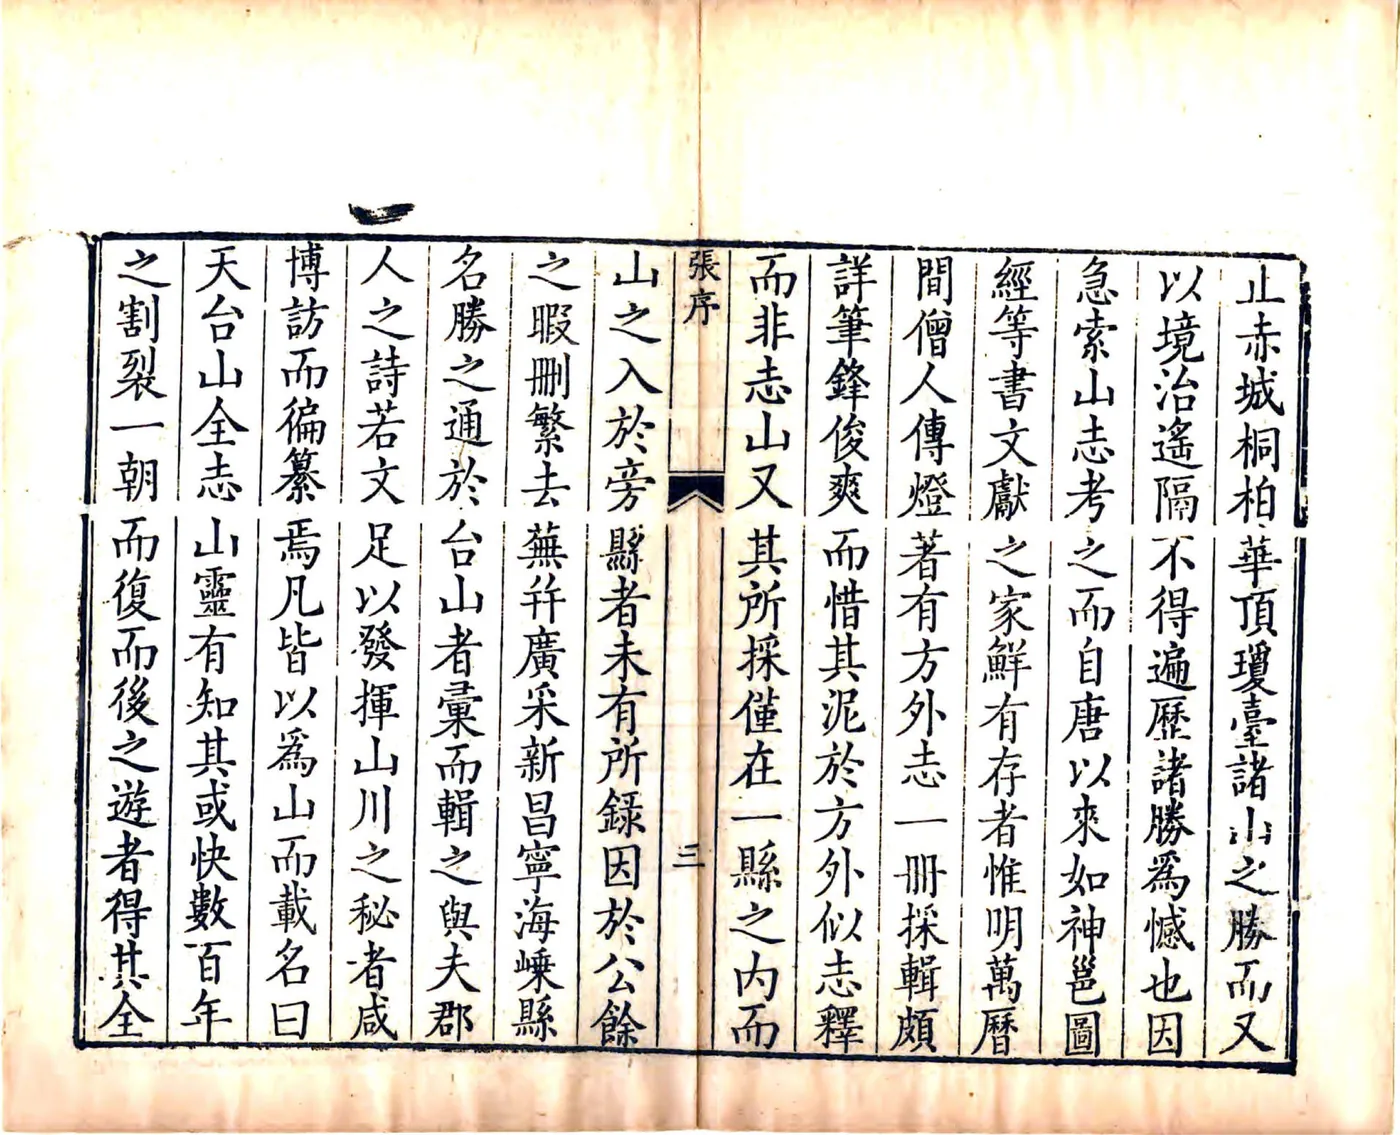 止赤城桐柏華頂瓊臺諸山之勝而又
以境治遙隔不得遍歷諸勝為憾也因
急索山志考之而自唐以來如神邕圖
經等書文獻之家鮮有存者惟明萬曆
間僧人傳燈著有方外志一冊採輯頗
詳筆鋒俊爽而惜其泥於方外似志釋
而非志山又其所採僅在一縣之內而
張序
三
山之入於旁縣者未有所錄因於公餘
之暇刪繁去蕪并廣采新昌寧海嵊縣
名勝之通於台山者彙而輯之與夫郡
人之詩若文足以發揮山川之秘者咸
博訪而徧纂焉凡皆以為山而載名曰
天台山全志山靈有知其或快數百年
之割裂一朝而復而後之遊者得其全